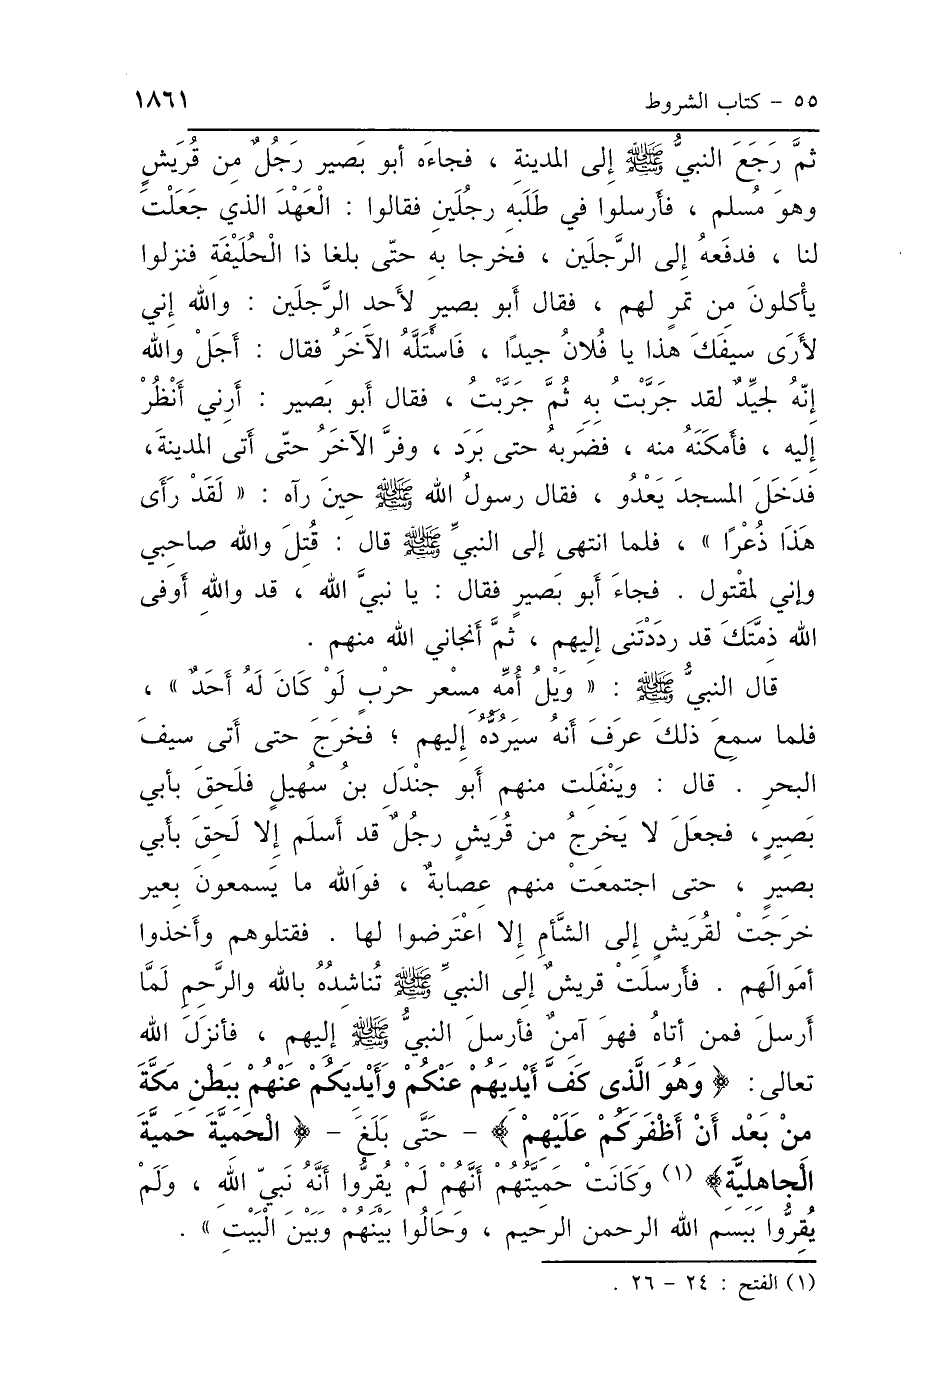 ٥٥ - كتاب الشروط ١٨٦١
ثمَّ رَجَعَ النبيُّ ﷺ إلى المدينةِ ، فجاءَه أبو بَصير رَجُلٌ من قُرَيشٍ
وهوَ مُسلم ، فأرسلوا في طلَبِهِ رجُلَينِ فقالوا : الْعَهْدَ الذي جَعَلْتَ
لنا ، فدفَعهُ إلى الرَّجلَين ، فخرجا بهِ حتّى بلغا ذا الْحُلَيْفَةِ فنزلوا
يأْكلونَ مِن تمرٍ لهم ، فقال أبو بصيرٍ لأَحدِ الرَّجلَين : واللهِ إني
لأرَى سيفَكَ هذا يا فُلانُ جيدًا ، فَاستَلَّهُ الآخَرُ فقال : أجَلْ واللهِ
إنّهُ لجيِّدٌ لقد جَرَّبْتُ بهِ ثُمَّ جَرَّبْتُ ، فقال أبو بَصير : أرِني أَنْظُرْ
إليه ، فأمكَنَهُ منه ، فضَربهُ حتى بَرَد ، وفرَّ الآخَرُ حتّى أتى المدينةَ،
فدَخَلَ المسجدَ يَعْدُو ، فقال رسولُ الله ﷺ حينَ رآه : « لَقَدْ رَأَى
هَذَا ذُعْرًا » ، فلما انتهى إلى النبيِّ ﷺ قال : قُتِلَ واللهِ صاحبي
وإني لمقْتول . فجاءَ أبو بَصيرٍ فقال : يا نبيَّ الله ، قد واللهِ أوفى
الله ذمَّتَكَ قد ردَدْتَنى إليهم ، ثمَّ أنجاني الله منهم .
قال النبيُّ ﷺ : « وَيْلُ أُمِّهِ مِسْعر حرْبٍ لَوْ كَانَ لَهُ أَحَدٌ » ،
فلما سمِعَ ذلكَ عرَفَ أنهُ سيَرُدُّهُ إليهم ؛ فخرَجَ حتى أتى سيفَ
البحرِ . قال : ويَنْفَلِت منهم أبو جنْدَلِ بنُ سُهيلٍ فلَحِقَ بأبي
بَصيرٍ، فجعَلَ لا يَخرجُ من قُرَيشٍ رجُلٌ قد أسلَم إلا لَحقَ بأبي
بصيرٍ ، حتى اجتمعَتْ منهم عصابةٌ ، فوَالله ما يَسمعونَ بِعير
خرَجَتْ لقُرَيشٍ إلى الشَّأمِ إلا اعْتَرضوا لها . فقتلوهم وأخذوا
أموَالَهم . فأرسلَتْ قريشٌ إلى النبيِّ ﷺ تُناشدُهُ بالله والرَّحِمِ لَمَّا
أرسلَ فمن أتاهُ فهوَ آمنٌ فأرسلَ النبيُّ ﷺ إليهم ، فأنزَلَ الله
تعالى: ﴿ وَهُوَ الَّذِى كَفَّ أَيْدِيَهُمْ عَنكُمْ وَأَيْدِيكُمْ عَنْهُمْ بِبَطْنِ مَكَّةَ
مِنْ بَعْدِ أَنْ أَظْفَرَكُمْ عَلَيْهِمْ ﴾ - حتَّى بَلَغَ - ﴿ الْحَمِيَّةَ حَمِيَّةَ
الْجاهِلِيَّةِ ﴾ (١) وَكَانَتْ حَمِيَّتُهُمْ أَنَّهُمْ لَمْ يُقِرُّوا أَنَّهُ نَبيّ الله ، ولَمْ
يُقِرُّوا بِبَسم الله الرحمن الرحيم ، وَحَالُوا بَيْنَهُمْ وَبَينَ الْبَيْتِ » .
(١) الفتح : ٢٤ - ٢٦ .